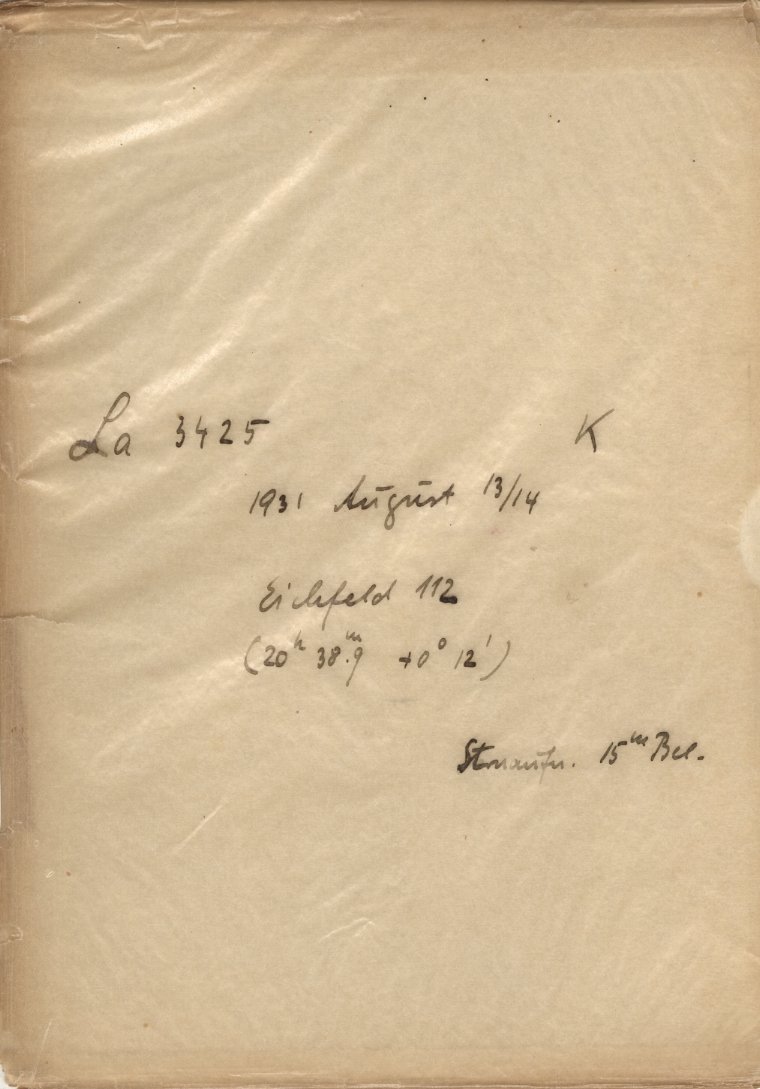 La 3425 K
1931 August 13/14
Eichfeld 112
(20ʰ 38ᵐ.9 +0° 12')
15ᵐ Bel.